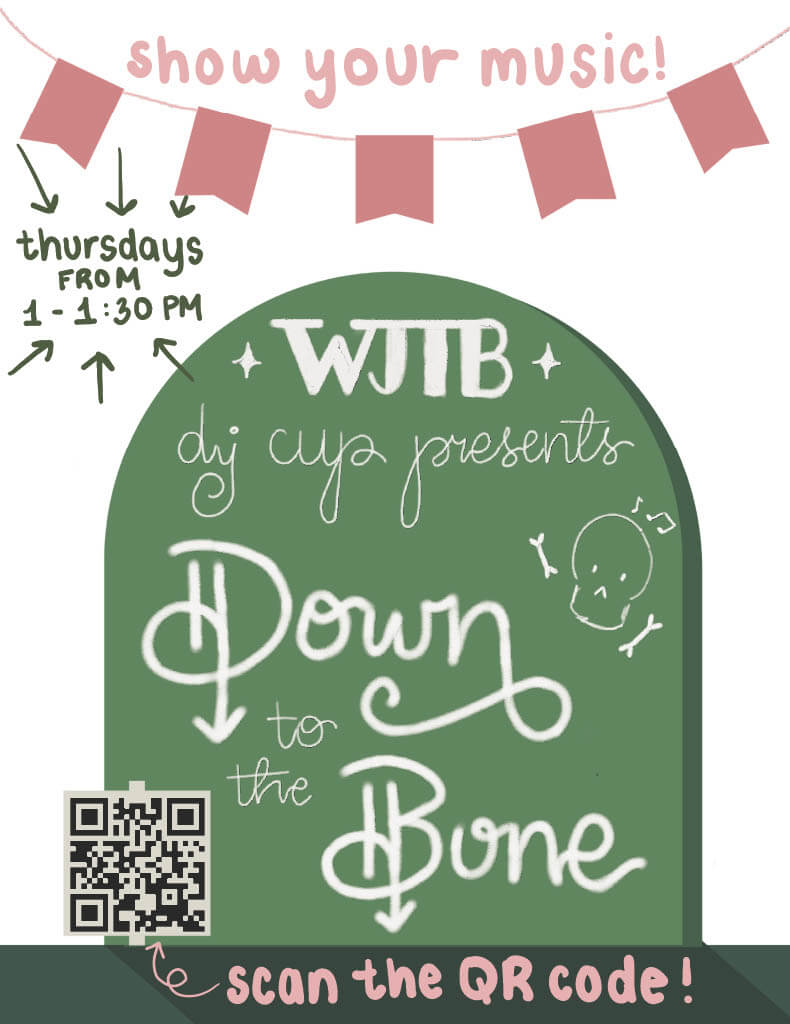 show your music!
thursdays
FROM
1 - 1:30 PM
WJTB
dj cup presents
Down
to
the
Bone
scan the QR code!